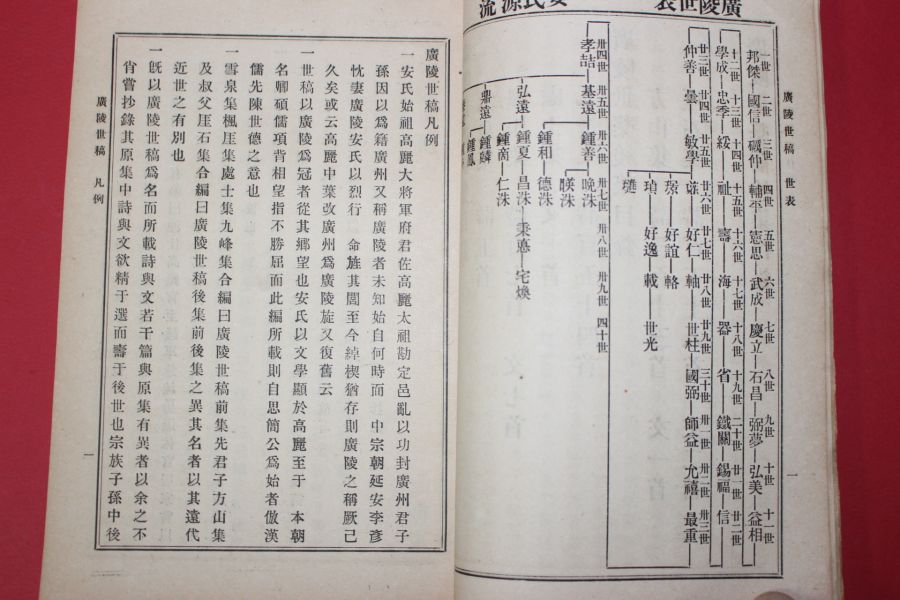 廣陵世稿 世表
一
廣陵世表
氏源流
一世 二世 三世 四世 五世 六世 七世 八世 九世 十世 十一世
邦傑 國信 碩仲 輔 憲思 武成 慶立 石昌 弼夢 弘美 益相
十二世 十三世 十四世 十五世 十六世 十七世 十八世 十九世 二十世 廿一世 廿二世
學成 忠季 綏 祉 壽 海 器 省 鐵關 錫福 信
廿三世 廿四世 廿五世 廿六世 廿七世 廿八世 廿九世 三十世 卅一世 卅二世 卅三世
仲善 曇 敏學 好仁 軸 世柱 國弼 師益 允禧 最重
好誼 輅
珀 好逸 載 世光
卅四世 卅五世 卅六世 卅七世 卅八世 卅九世 四十世
孝喆 基遠 鍾善 晩洙
洙
鍾和 德洙
弘遠 鍾夏 昌洙 秉惪 宅煥
鍾崗 仁洙
鼎遠 鍾麟
鍾鳳
廣陵世稿凡例
一安氏始祖高麗大將軍府君佐高麗太祖勘定邑亂以功封廣州君子
孫因以爲籍廣州又稱廣陵者未知始自何時而 中宗朝延安李彦
忱妻廣陵安氏以烈行 命旌其閭至今綽楔猶存則廣陵之稱厥已
久矣或云高麗中葉改廣州爲廣陵旋又復舊云
一世稿以廣陵爲冠者從其鄕望也安氏以文學顯於高麗至于 本朝
名卿碩儒項背相望指不勝屈而此編所載則自思簡公爲始者倣漢
儒先陳世德之意也
一雪泉集楓厓集處士集九峰集合編曰廣陵世稿前集先君子方山集
及叔父厓石集合編曰廣陵世稿後集前後集之異其名者以其遠代
近世之有別也
一旣以廣陵世稿爲名而所載詩與文若干篇與原集有異者以余之不
肖嘗抄錄其原集中詩與文欲精于選而壽于後世也宗族子孫中後
廣陵世稿 凡例
一